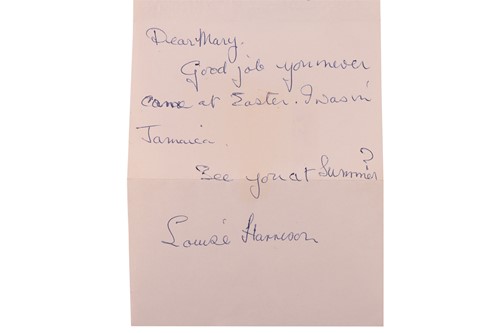 Dear Mary.
Good job you never
came at Easter. I was in
Jamaica.
See you at Summer?
Louise Harrison